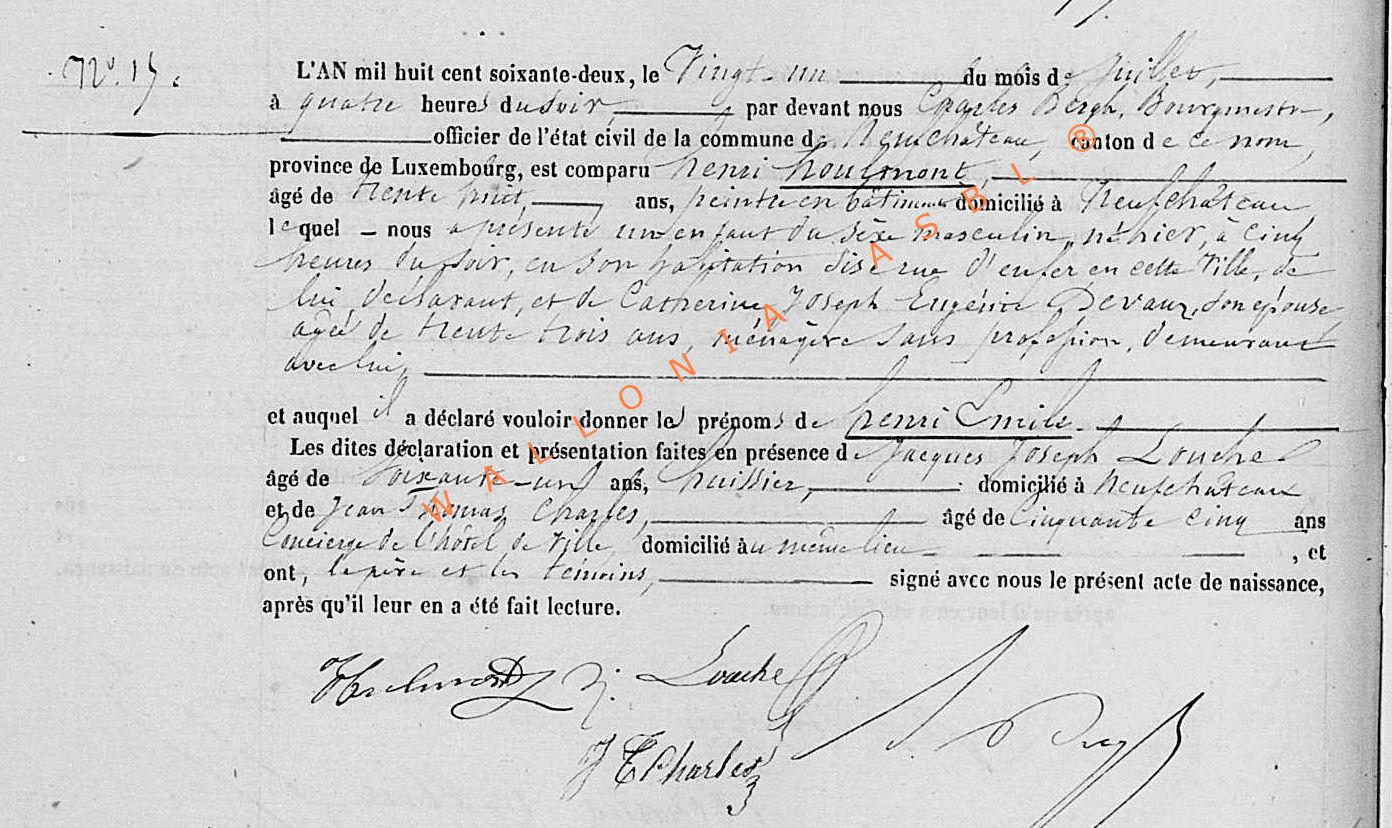 N°. 15.
L'AN mil huit cent soixante-deux, le Vingt-un du mois de Juillet,
à quatre heures du soir, par devant nous Charles Bergh, Bourgmestre,
officier de l'état civil de la commune de Neufchâteau, canton de ce nom,
province de Luxembourg, est comparu henri houlmont,
âgé de trente huit, ans, peintre en bâtiments domicilié à Neufchâteau,
lequel nous a présenté un enfant du sèxe masculin, né hier, à cinq
heures du soir, en son habitation sise rue d'enfer en cette Ville, de
lui déclarant, et de Catherine Joseph Eugénie Devaux, son épouse
agée de trente trois ans, ménagère sans profession, demeurant
avec lui,
et auquel il a déclaré vouloir donner les prénoms de henri Emile
Les dites déclaration et présentation faites en présence de Jacques Joseph Louche
âgé de soixante-un ans, huissier, domicilié à Neufchateau
et de Jean Thomas Charles, âgé de Cinquante cinq ans
Concierge de l'hôtel de Ville, domicilié au même lieu, et
ont, le père et les témoins, signé avec nous le présent acte de naissance,
après qu'il leur en a été fait lecture.
Louche
J T Charles
WALLONIA ASBL ®